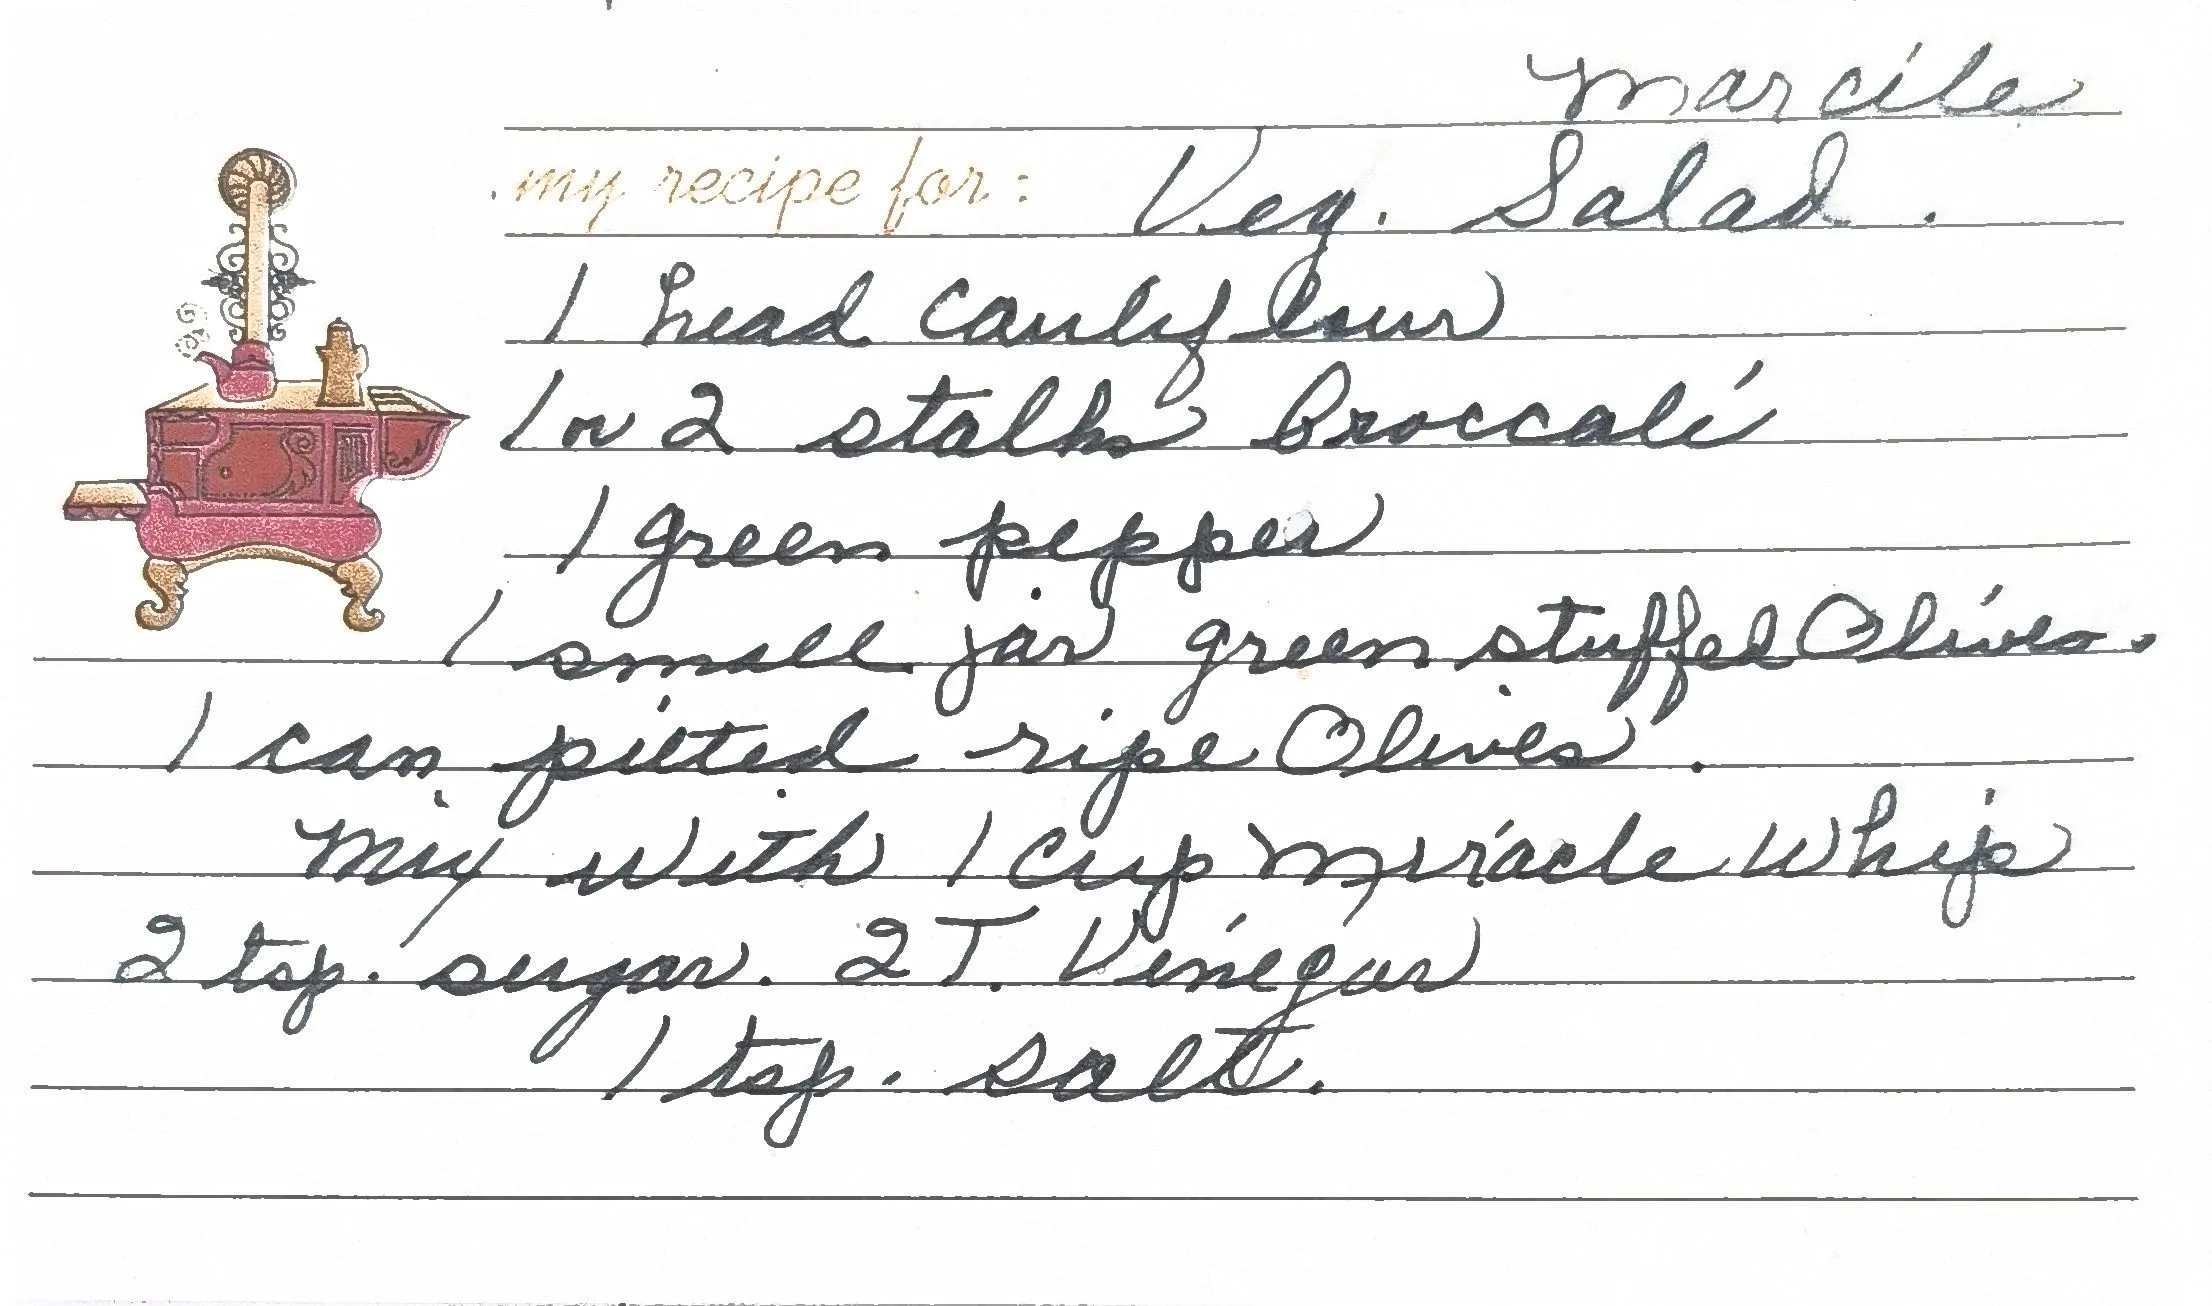 Marcile
my recipe for: Veg. Salad.
1 head caulyflour
1 or 2 stalks broccali
1 green pepper
1 small jar green stuffed Olives.
1 can pitted ripe Olives.
Mix with 1 cup Miracle Whip
2 tsp. sugar. 2 T. Vinegar
1 tsp. salt.